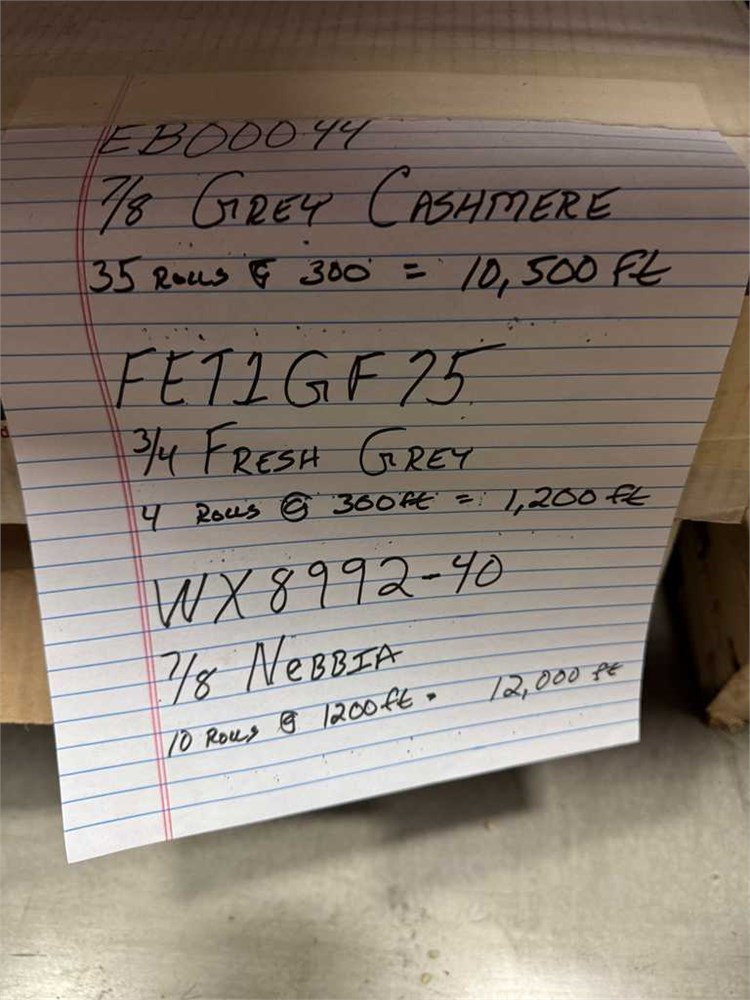 EB00044
7/8 GREY CASHMERE
35 Rolls @ 300' = 10,500 ft
FET1GF75
3/4 FRESH GREY
4 Rolls @ 300ft = 1,200 ft
WX8992-40
7/8 NeBBIA
10 Rolls @ 1200ft = 12,000 ft